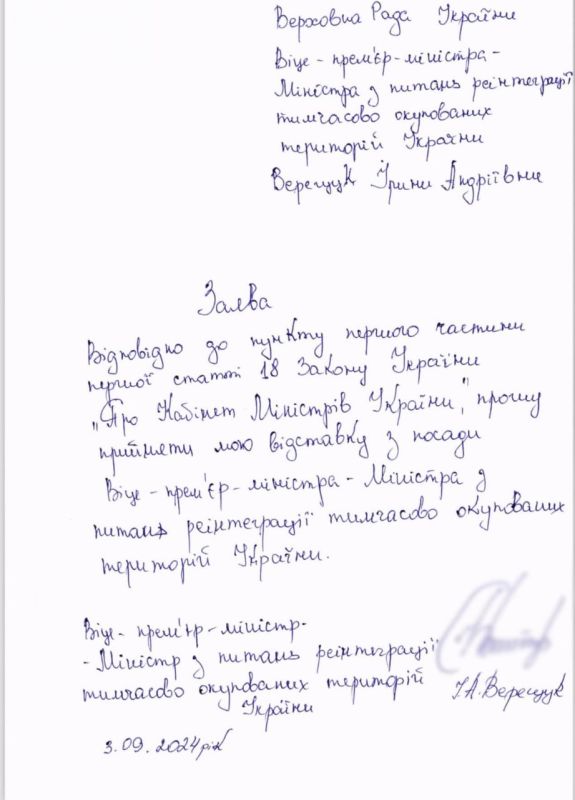 Верховна Рада України
Віце-прем'єр-міністра-
Міністра з питань реінтеграції
тимчасово окупованих
територій України
Верещук Ірини Андріївни
Заява
Відповідно до пункту першого частини
першої статті 18 Закону України
"Про Кабінет Міністрів України," прошу
прийняти мою відставку з посади
Віце-прем'єр-міністра-Міністра з
питань реінтеграції тимчасово окупованих
територій України.
Віце-прем'єр-міністр-
-Міністр з питань реінтеграції
тимчасово окупованих територій
України
І.А.Верещук
3.09.2024рік